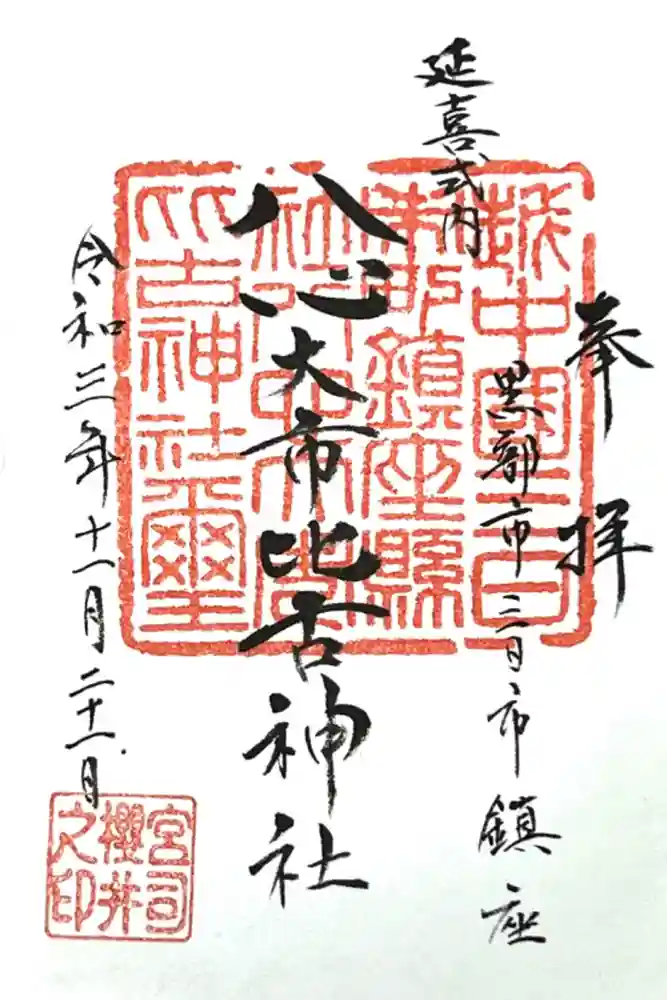 奉拝
延喜式内
黒部市三日市鎮座
八心大市比古神社
令和三年十一月二十一日
越中國三日
鎮座縣
社
比古神社璽
宮司
櫻井
之印